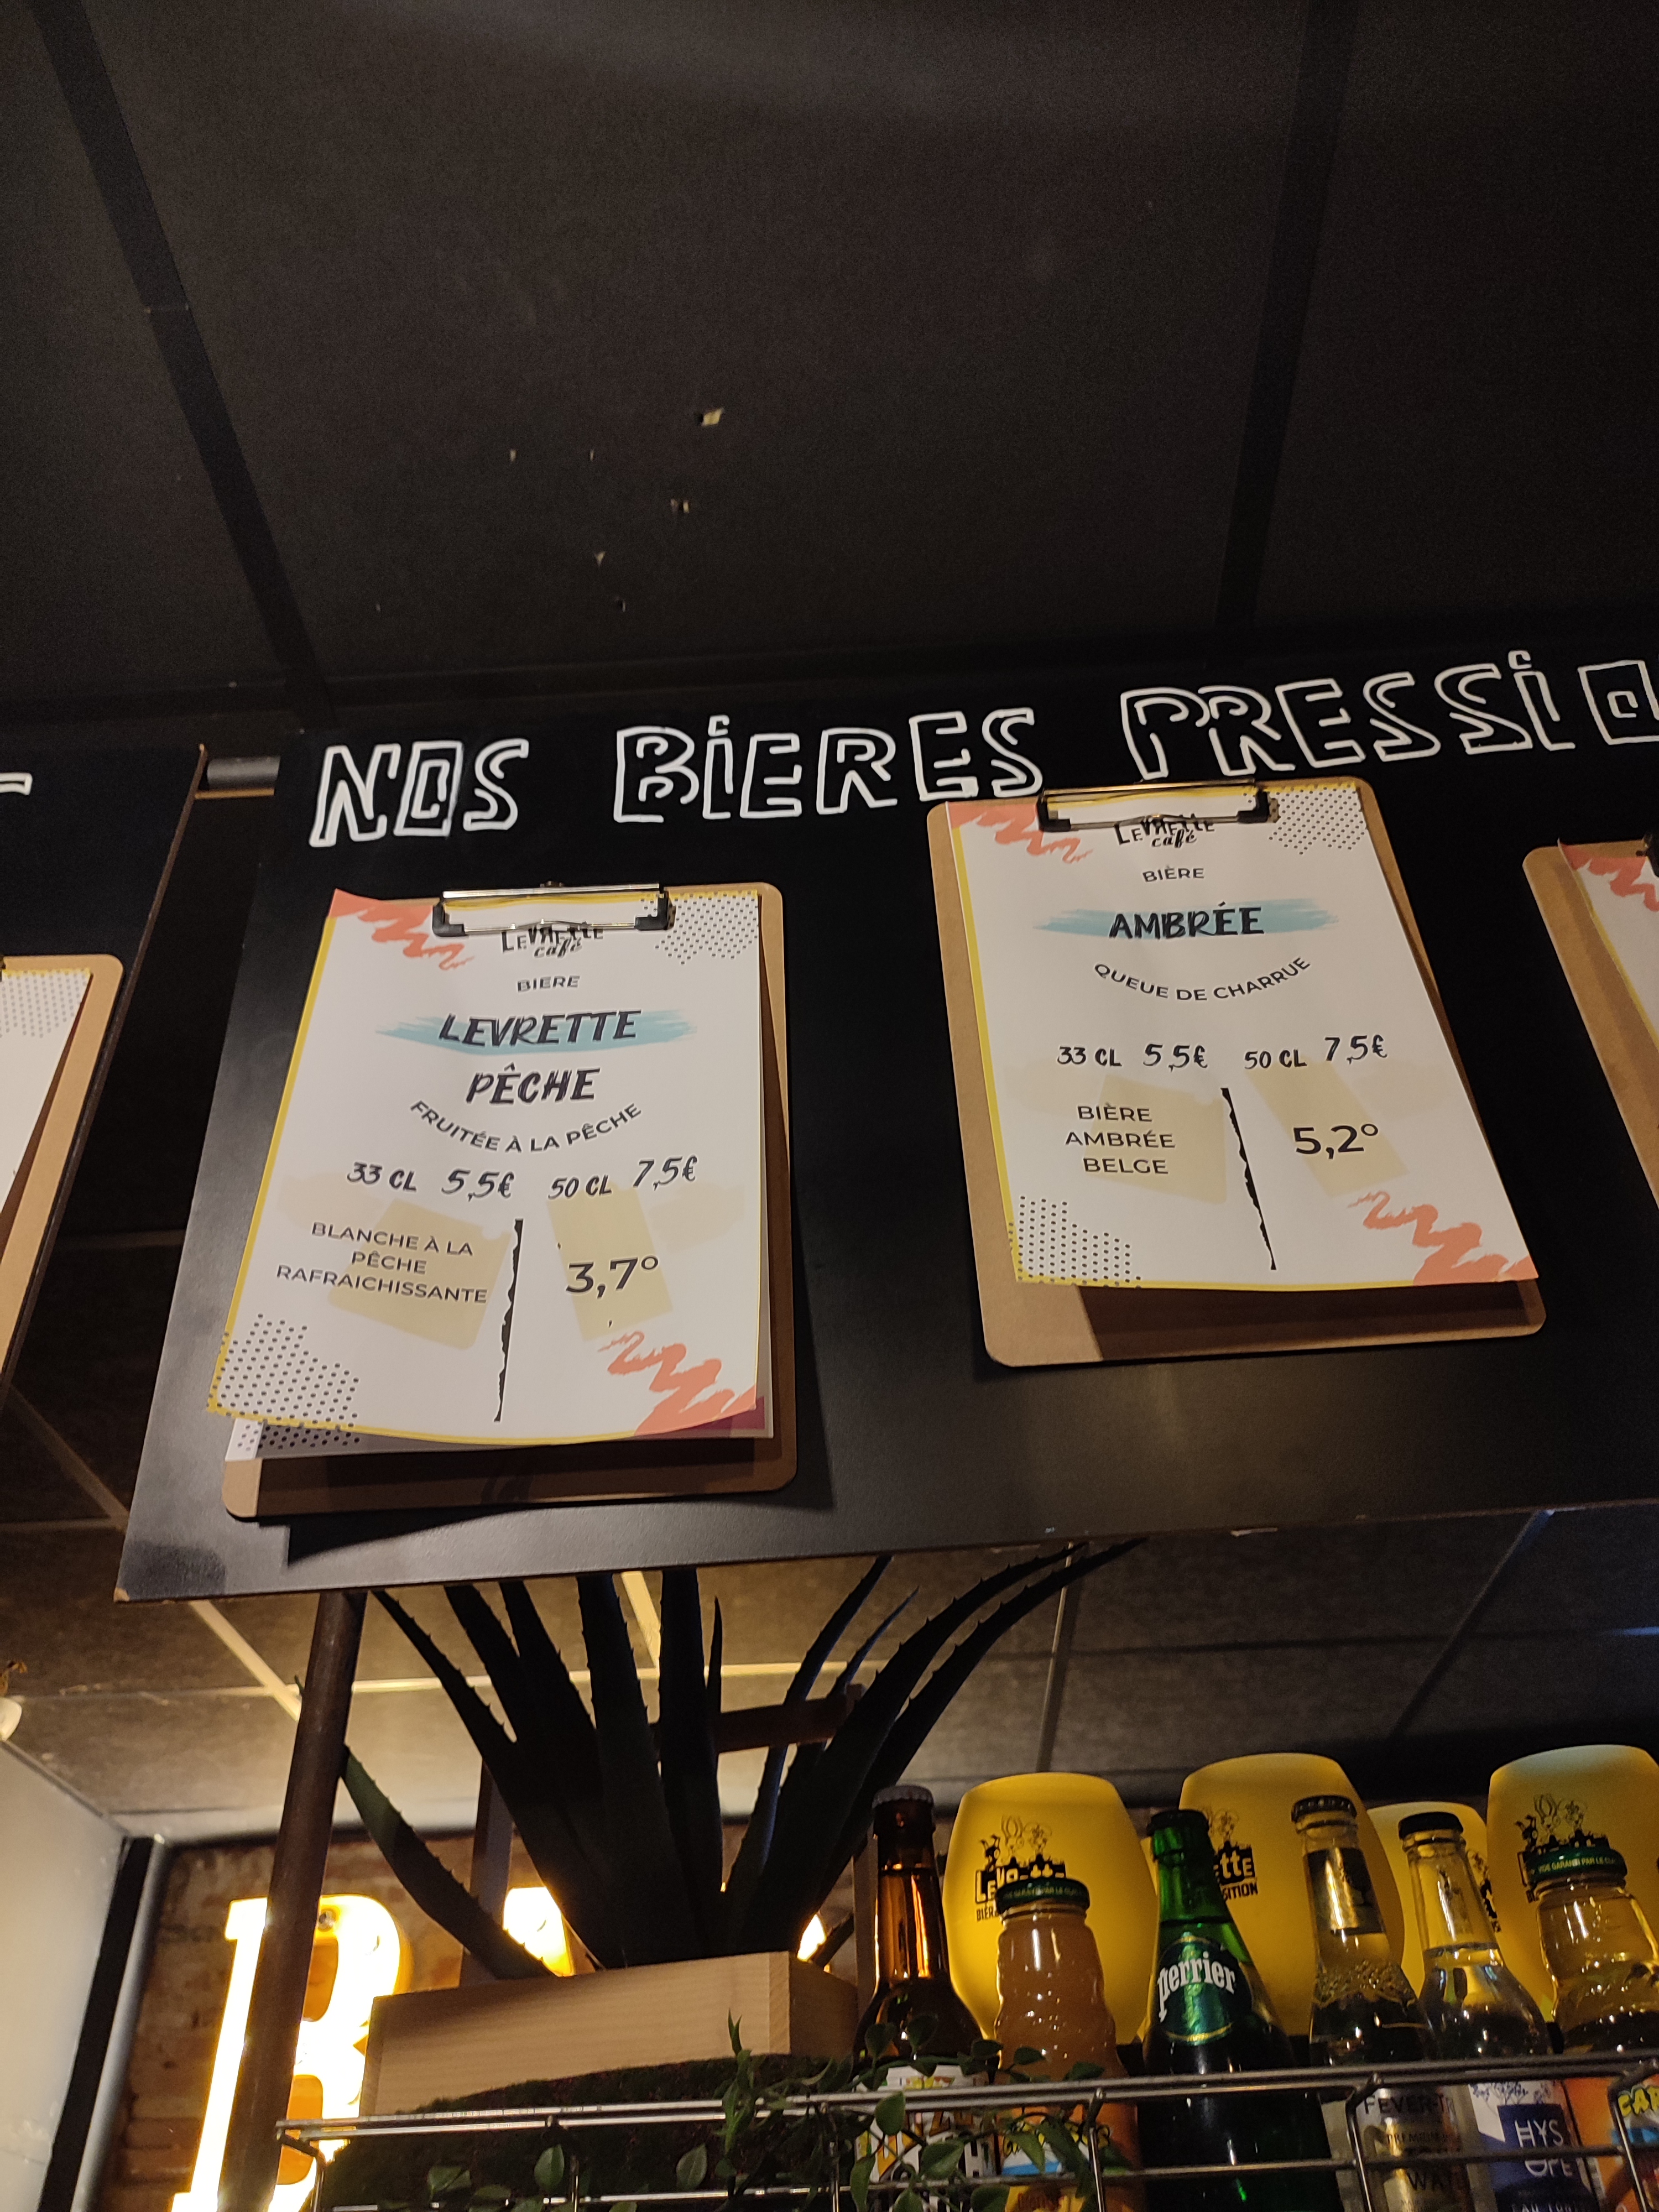 NOS BIERES PRESSIO
LEVRETTE
café
BIERE
LEVRETTE
PÊCHE
FRUITÉE À LA PÊCHE
33 CL 5,5€ 50 CL 7,5€
BLANCHE À LA
PÊCHE
RAFRAICHISSANTE
3,7°
LEVRETTE
café
BIÈRE
AMBRÉE
QUEUE DE CHARRUE
33 CL 5,5€ 50 CL 7,5€
BIÈRE
AMBRÉE
BELGE
5,2°
perrier
FEVER-T
HYS